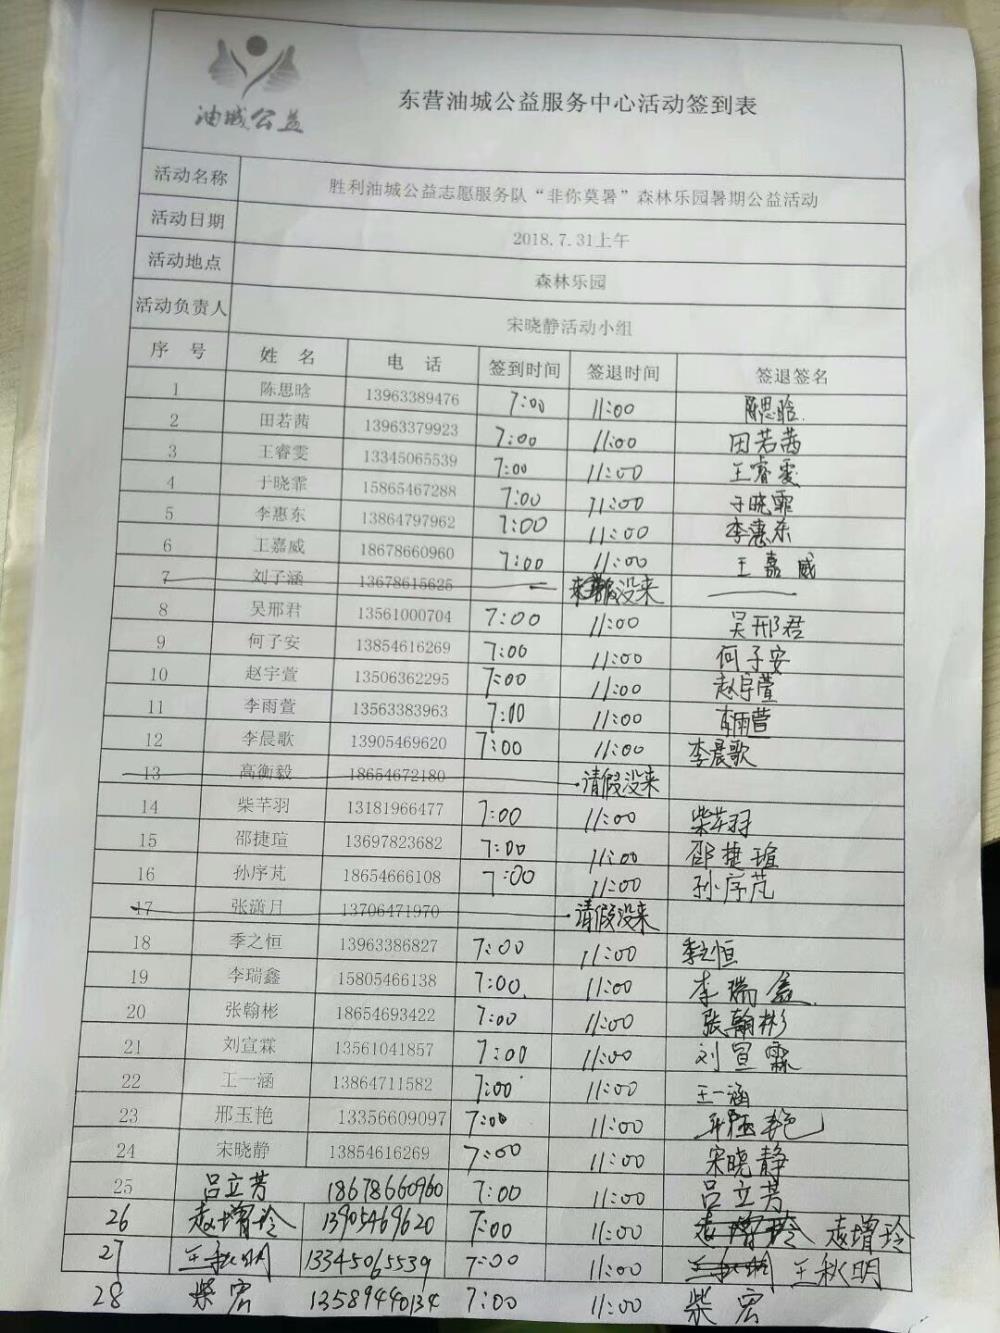 油城公益
东营油城公益服务中心活动签到表
活动名称 胜利油城公益志愿服务队“非你莫暑”森林乐园暑期公益活动
活动日期 2018.7.31上午
活动地点 森林乐园
活动负责人 宋晓静活动小组
序 号 姓 名 电 话 签到时间 签退时间 签退签名
1 陈思晗 13963389476 7:00 11:00 陈思晗.
2 田若茜 13963379923 7:00 11:00 田若茜
3 王睿雯 13345065539 7:00 11:00 王睿雯
4 于晓霏 15865467288 7:00 11:00 于晓霏
5 李惠东 13864797962 7:00 11:00 李惠东
6 王嘉威 18678660960 7:00 11:00 王嘉威
7 刘子涵 13678615625 没来
8 吴邢君 13561000704 7:00 11:00 吴邢君
9 何子安 13854616269 7:00 11:00 何子安
10 赵宇萱 13506362295 7:00 11:00 赵宇萱
11 李雨萱 13563383963 7:00 11:00 李雨萱
12 李晨歌 13905469620 7:00 11:00 李晨歌
13 高衡毅 18654672180 请假没来
14 柴芊羽 13181966477 7:00 11:00 柴芊羽
15 邵捷瑄 13697823682 7:00 11:00 邵捷瑄
16 孙序芃 18654666108 7:00 11:00 孙序芃
17 张潇月 13706471970 请假没来
18 季之恒 13963386827 7:00 11:00 季之恒
19 李瑞鑫 15805466138 7:00 11:00 李瑞鑫.
20 张翰彬 18654693422 7:00 11:00 张翰彬
21 刘宣霖 13561041857 7:00 11:00 刘宣霖
22 王一涵 13864711582 7:00 11:00 王一涵
23 邢玉艳 13356609097 7:00 11:00 邢玉艳
24 宋晓静 13854616269 7:00 11:00 宋晓静
25 吕立芳 18678660960 7:00 11:00 吕立芳
26 赵增玲 13905469620 7:00 11:00 赵增玲 赵增玲
27 王秋明 13345065539 7:00 11:00 王秋明 王秋明
28 柴宏 13589440134 7:00 11:00 柴宏